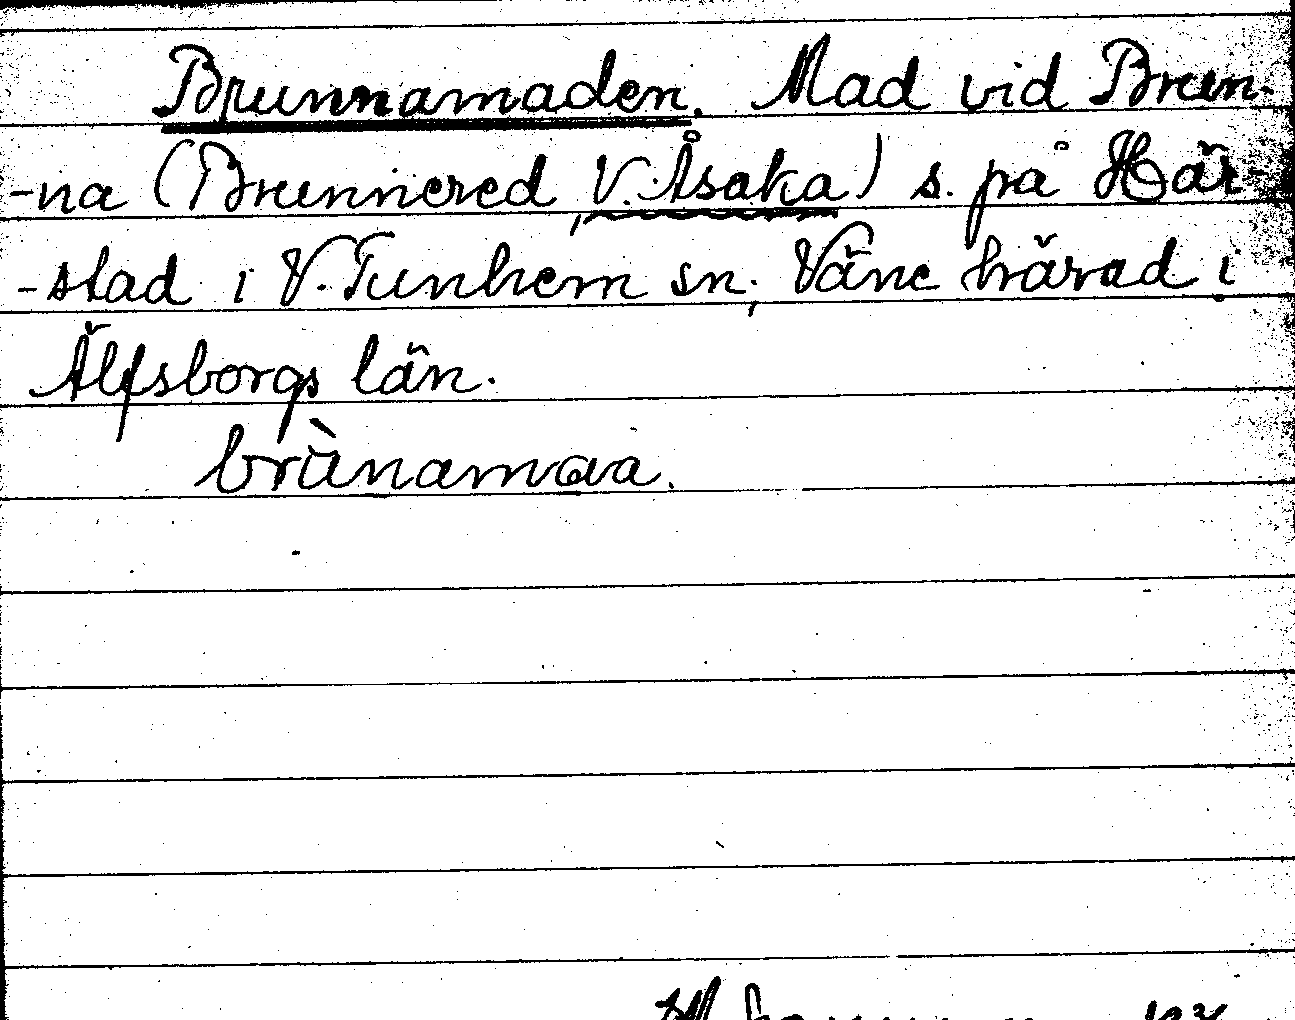 Brunnamaden. Mad vid Brun-
-na (Brunnered, V. Åsaka) s. på Här-
-stad i V. Tunhem sn., Väne härad i
Älfsborgs län.
brùnamaa.